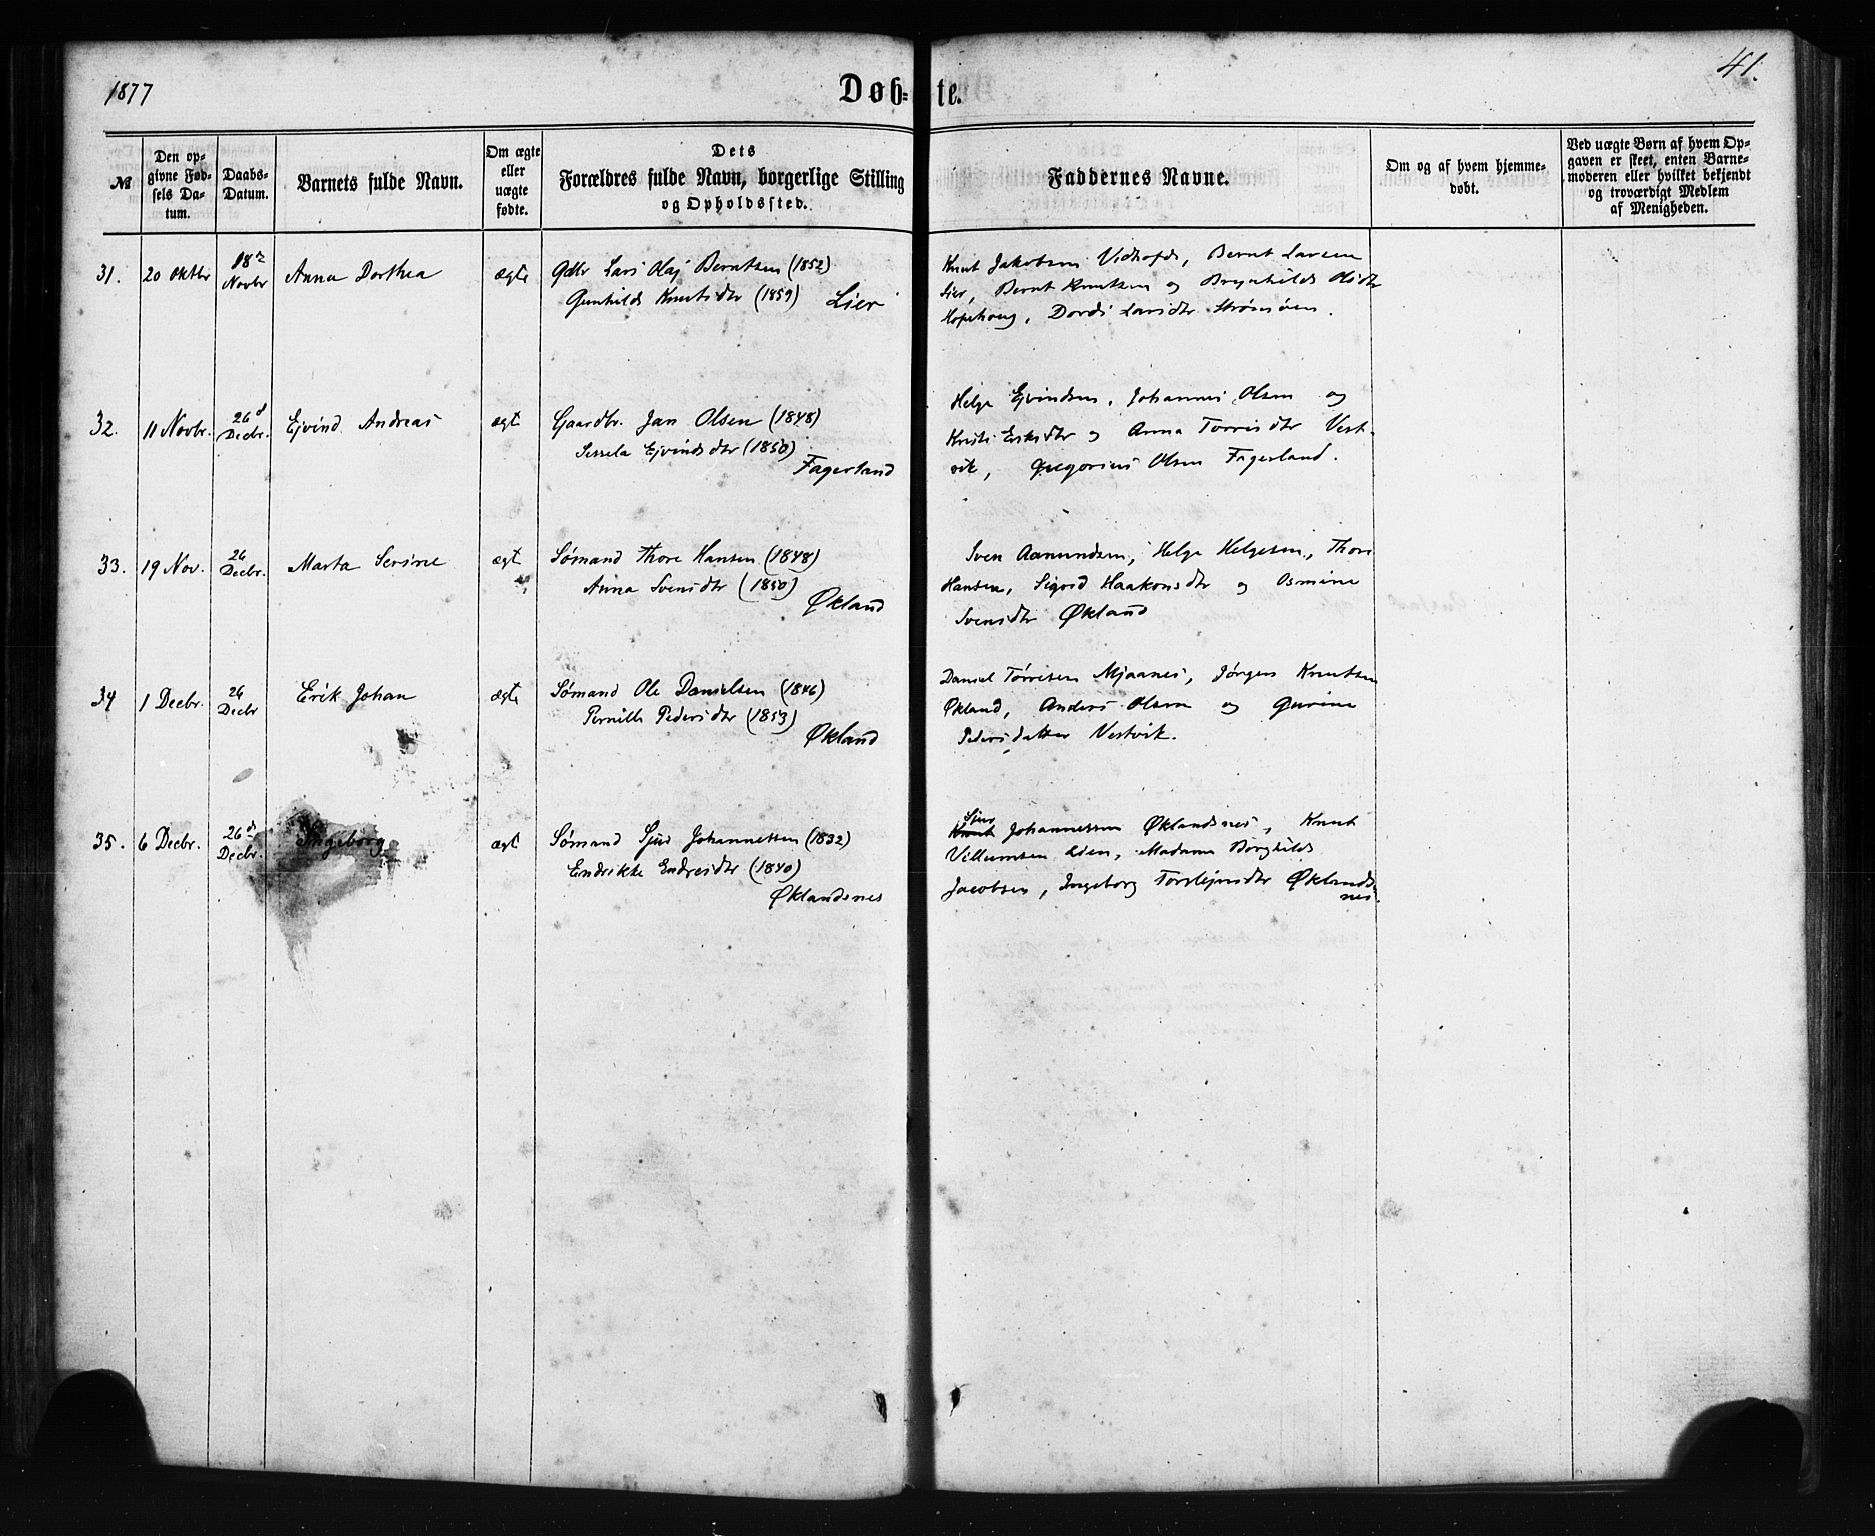 1877
Døb-te.
41.
№
Den op-
givne Fød-
sels Da-
tum.
Daabs-
Datum.
Barnets fulde Navn.
Om ægte
eller
uægte
fødte.
Dets
Forældres fulde Navn, borgerlige Stilling
og Opholdssted.
Faddernes Navne.
Om og af hvem hjemme-
døbt.
Ved uægte Børn af hvem Op-
gaven er skeet, enten Barne-
moderen eller hvilket bekjendt
og troværdigt Medlem
af Menigheden.
31.
20 Oktbr
18
Novbr
Anna Dorthea
ægte
Gdbr Lars Olaj Berntsen (1852)
Gunhild Knutsdtr (1859) Lier
Knut Jakobsen Vidhofd, Bernt Larsen
Lier, Bernt Knutsen og Brynhild Olsdtr
Hopehaug, Dordi Larsdtr Strømøen.
32.
11 Novbr.
26d
Decbr.
Ejvind Andreas
ægt
Gaardbr. Jan Olsen (1848)
Sessela Ejvindsdtr (1850)
Fagerland
Helge Ejvindsen, Johannes Olsen og
Kristi Eriksdtr og Anna Torrisdtr Vest-
vik, Gregorius Olsen Fagerland.
33.
19 Nov.
26
Decbr.
Marta Serine
ægt
Sømand Thore Hansen (1848)
Anna Svensdtr (1850)
Økland
Sven Aamundsen, Helge Helgesen, Thore
Hansen, Sigrid Haakonsdtr og Osmine
Svensdtr Økland
34
1 Decbr.
26
Decbr
Erik Johan
ægte
Sømand Ole Danielsen (1846)
Pernille Pedersdtr (1853)
Økland
Daniel Tørresen Mjaanes, Jørgen Knutsen
Økland, Anders Olsen og Gurine
Pedersdatter Vestvik.
35.
6 Decbr.
26d
Decbr.
Ingeborg
ægt
Sømand Sjur Johannessen (1832)
Endrikke Endresdtr (1840)
Øklandsnes
Sjur
Knut Johannessen Øklandsnes, Knut
Villumsen Lien, Madame Borghild
Jacobsen, Ingeborg Torslejnsdtr Øklands-
nes.